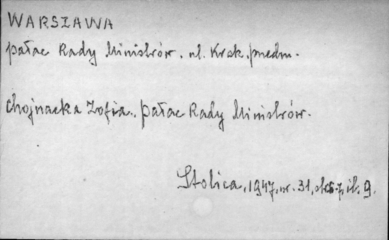 WARSZAWA
pałac Rady Ministrów. ul. Krak. przedm.
Chojnacka Zofia. pałac Rady Ministrów.
Stolica, 1947, nr. 31, il. 9.